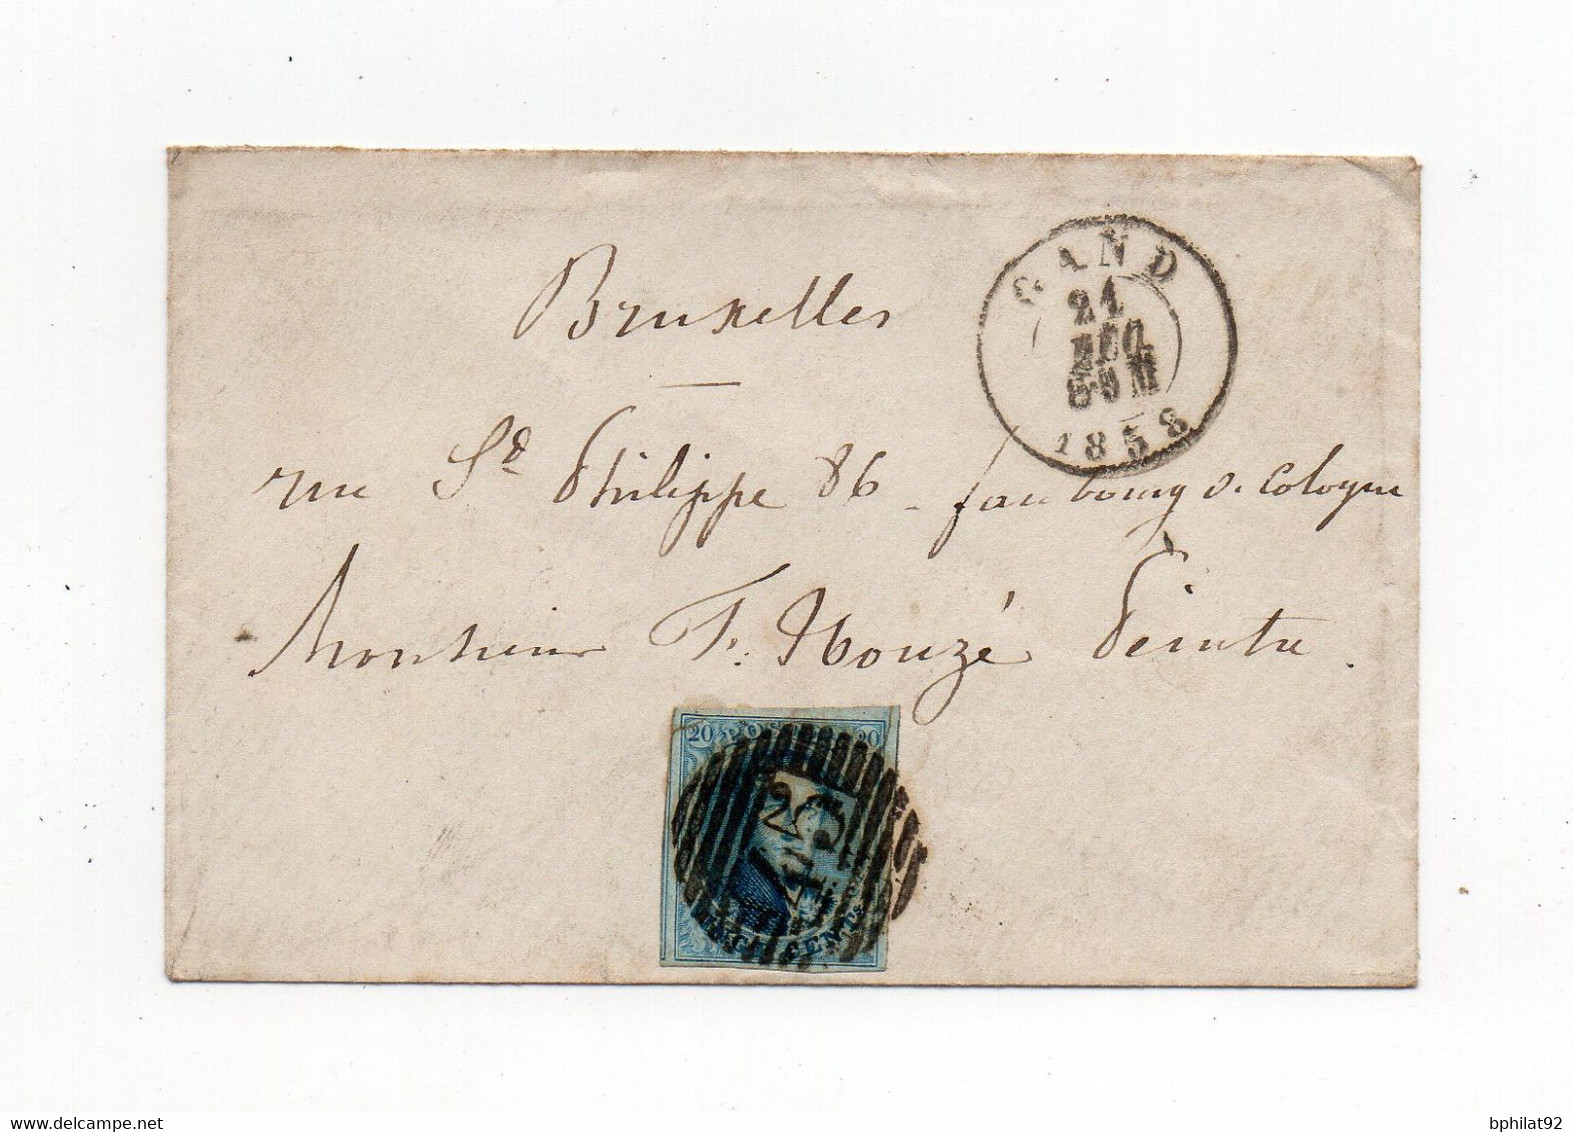 Bruxelles
GAND
21
DEC
1858
rue St Philippe 86 - faubourg de Cologne
Monsieur F. Houzé Peintre.
20 POSTES 20
45
VINGT CENTS
www.delcampe.net
bphilat92